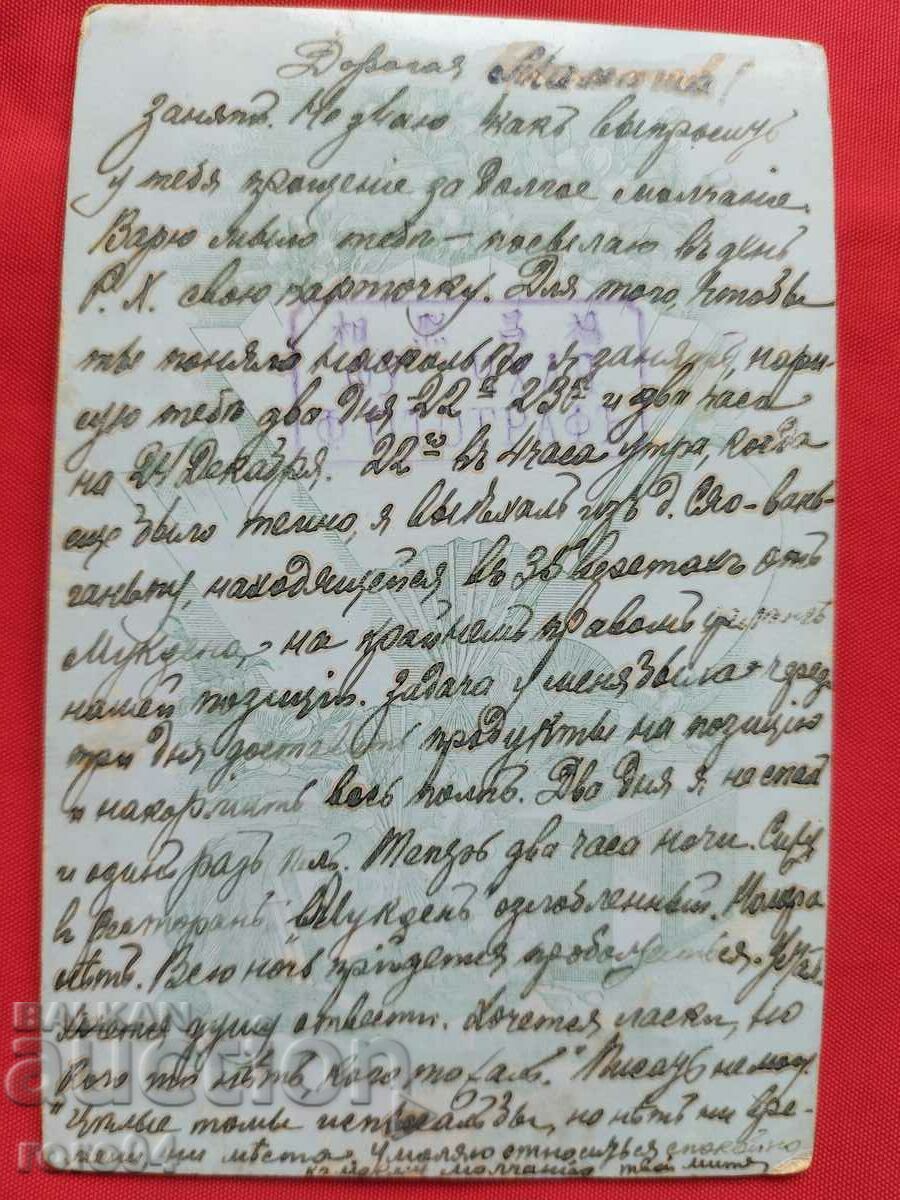 Дорогая
занятъ. Не знаю какъ выпросить
у тебя прощеніе за долгое молчаніе.
тебѣ – посылаю въ день
Р. Х. свою карточку. Для того, чтобы
ты поняла насколько я занятъ, нари-
сую тебѣ два дня 22го 23го и два часа
на 24 Декабря. 22го въ 4 часа утра, когда
еще было темно, я выѣхалъ изъ д.
находящейся въ 35 верстахъ отъ
Мукдена, на крайнемъ правомъ флангѣ
нашей позиціи. Задача у меня была
три дня доставить продукты на позицію
и накормить весь полкъ. Два дня я не спалъ
и одинъ разъ ѣлъ. Теперь два часа ночи. Сижу
въ ресторанѣ "Мукденъ" озлобленный. Номера
нѣтъ. Всю ночь прійдется проболтаться.
Хочется душу отвести. Хочется ласки, но
кого то нѣтъ, кого то жаль. Писать не могу
Цѣлые томы исписалъ бы, но нѣтъ ни вре-
мени ни мѣста. Умоляю относиться спокойно
къ моему молчанію твой Митя
ФОТОГРАФЪ
BALKAN
auction
гого84